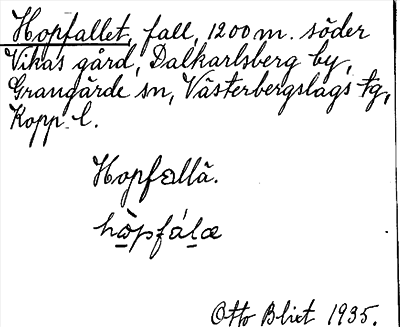 Hopfallet, fall, 1200 m. söder
Vikas gård, Dalkarlsberg by,
Grangärde sn, Västerbergslags tg,
Kopp. l.
Hopfallä.
hòpfálæ
Otto Blixt 1935.